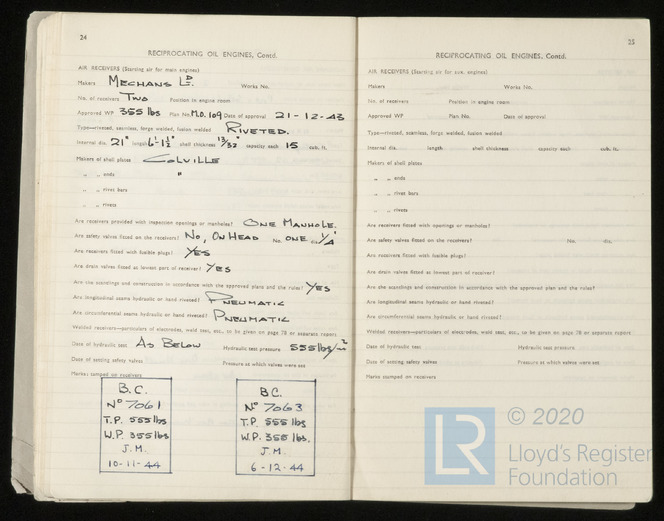 24
RECIPROCATING OIL ENGINES, Contd.
AIR RECEIVERS (Starting air for main engines)
Makers MECHANS LD. Works No.
No. of receivers TWO Position in engine room
Approved WP 355 lbs Plan No. M.D. 109 Date of approval 21-12-43
Type—riveted, seamless, forge welded, fusion welded RIVETED.
Internal dia. 21" length 6'-1½" shell thickness 13/32" capacity each 15 cub. ft.
Makers of shell plates COLVILLE
„ „ ends "
„ „ rivet bars
„ „ rivets
Are receivers provided with inspection openings or manholes? ONE MANHOLE.
Are safety valves fitted on the receivers? NO, ON HEAD No. ONE
Are receivers fitted with fusible plugs? YES
Are drain valves fitted at lowest part of receiver? YES
Are the scantlings and construction in accordance with the approved plans and the rules? YES
Are longitudinal seams hydraulic or hand riveted? PNEUMATIC
Are circumferential seams hydraulic or hand riveted? PNEUMATIC
Welded receivers—particulars of electrodes, weld test, etc., to be given on page 78 or separate report
Date of hydraulic test AS BELOW Hydraulic test pressure 555 lbs/"2
Date of setting safety valves Pressure at which valves were set
Marks stamped on receivers
B.C.
No 7061
T.P. 555 lbs
W.P. 355 lbs
J.M.
10-11-44
B.C.
No 7063
T.P. 555 lbs
W.P. 355 lbs.
J.M.
6-12-44
25
RECIPROCATING OIL ENGINES, Contd.
AIR RECEIVERS (Starting air for aux. engines)
Makers Works No.
No. of receivers Position in engine room
Approved WP Plan No. Date of approval
Type—riveted, seamless, forge welded, fusion welded
Internal dia. length shell thickness capacity each cub. ft.
Makers of shell plates
„ „ ends
„ „ rivet bars
„ „ rivets
Are receivers fitted with openings or manholes?
Are safety valves fitted on the receivers? No. dia.
Are receivers fitted with fusible plugs?
Are drain valves fitted at lowest part of receiver?
Are the scantlings and construction in accordance with the approved plans and the rules?
Are longitudinal seams hydraulic or hand riveted?
Are circumferential seams hydraulic or hand riveted?
Welded receivers—particulars of electrodes, weld test, etc., to be given on page 78 or separate report
Date of hydraulic test Hydraulic test pressure
Date of setting safety valves Pressure at which valves were set
Marks stamped on receivers
LR
© 2020
Lloyd's Register
Foundation